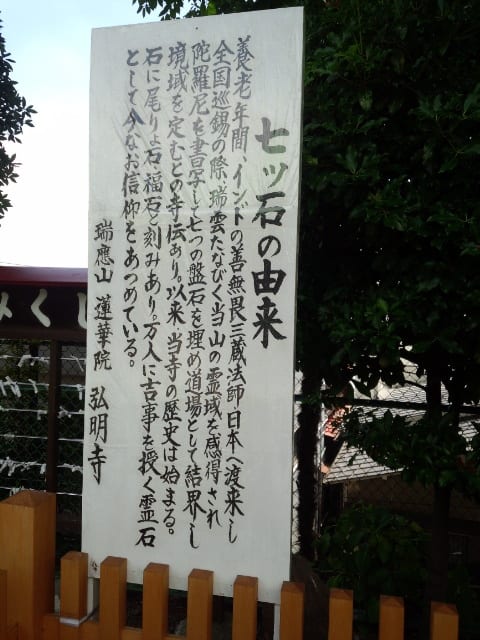 七ツ石の由来
養老年間、インドの善無畏三蔵法師日本へ渡来し
全国巡錫の際、瑞雲たなびく当山の霊域を感得され
陀羅尼を書写して七つの盤石を埋め道場として結界し
境域を定むとの寺伝あり。以来、当寺の歴史は始まる。
石に尾りょ石、福石と刻みあり。万人に吉事を授く霊石
として今なお信仰をあつめている。
瑞應山 蓮華院 弘明寺
みくじ